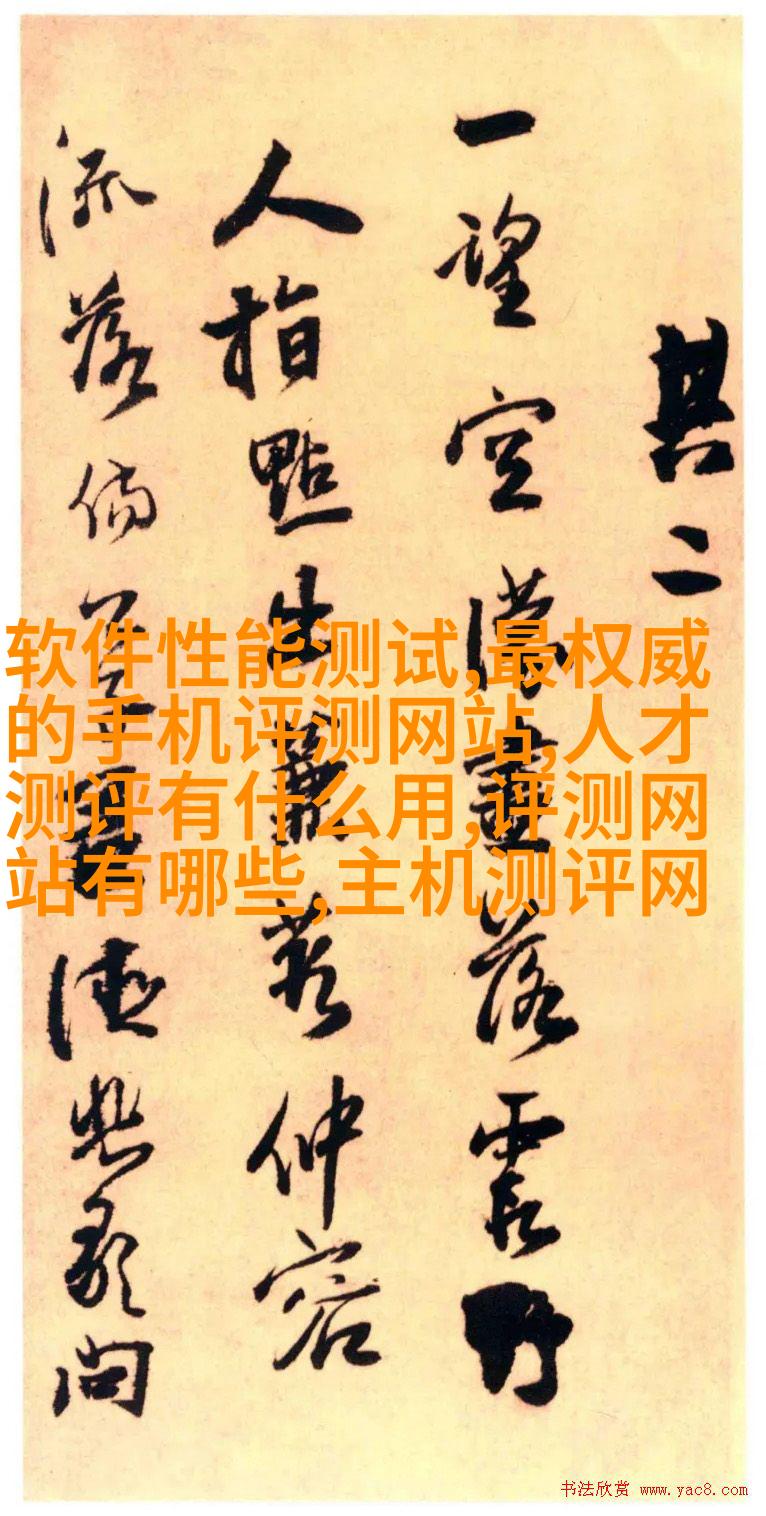 其二
一望空濛落霞野
人指點出仲容
流落問
软件性能测试,最权威
的手机评测网站,人才
测评有什么用,评测网
站有哪些,主机测评网
书法欣赏 www.yac8.com